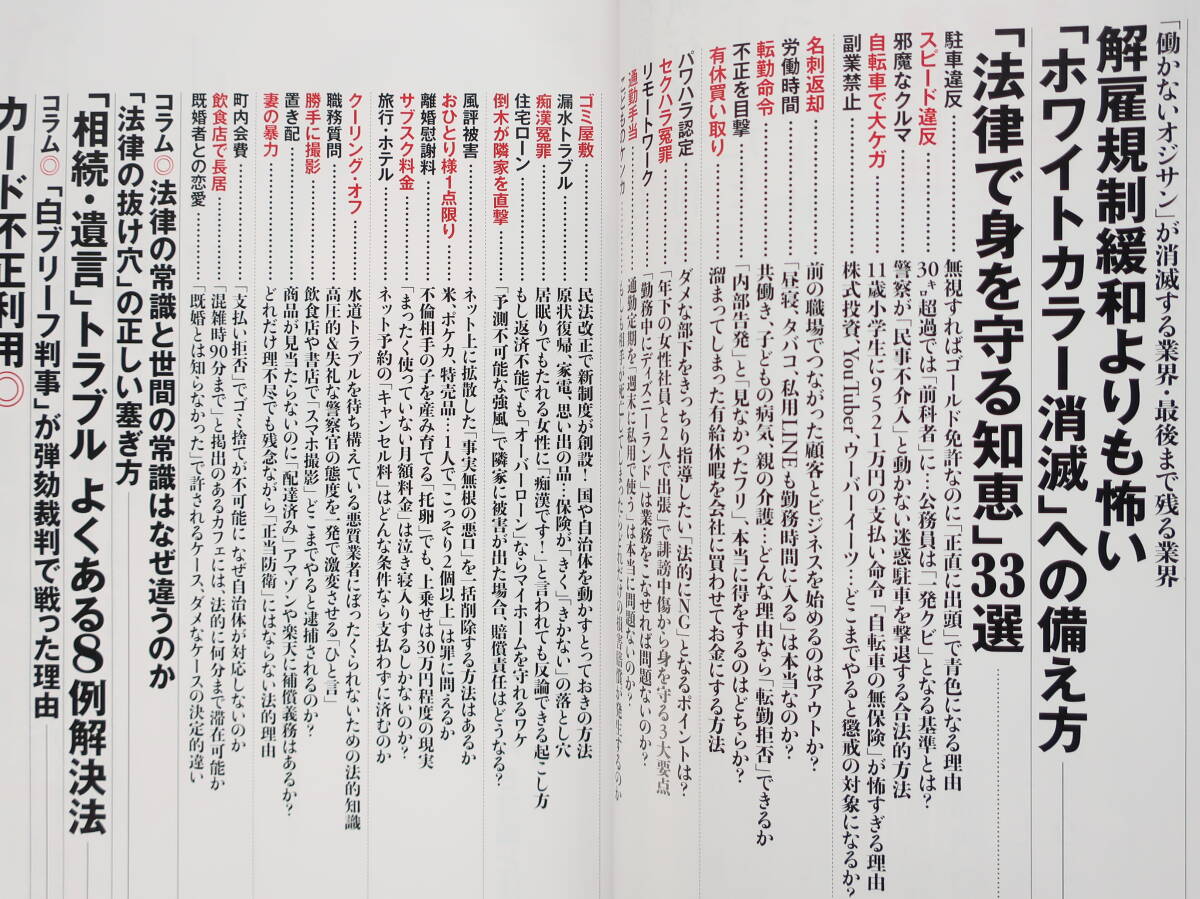 「働かないオジサン」が消滅する業界・最後まで残る業界
解雇規制緩和よりも怖い
「ホワイトカラー消滅」への備え方
「法律で身を守る知恵」33選
駐車違反…………無視すればゴールド免許なのに「正直に出頭」で青色になる理由
スピード違反…………30㌔超過では「前科者」に…公務員は「一発クビ」となる基準とは?
邪魔なクルマ…………警察が「民事不介入」と動かない迷惑駐車を撃退する合法的方法
自転車で大ケガ…………11歳小学生に9521万円の支払い命令「自転車の無保険」が怖すぎる理由
副業禁止…………株式投資、YouTuber、ウーバーイーツ…どこまでやると懲戒の対象になるか?
名刺返却…………前の職場でつながった顧客とビジネスを始めるのはアウトか?
労働時間…………「昼寝、タバコ、私用LINEも勤務時間に入る」は本当なのか?
転勤命令…………共働き、子どもの病気、親の介護…どんな理由なら「転勤拒否」できるか
不正を目撃…………「内部告発」と「見なかったフリ」、本当に得をするのはどちらか?
有休買い取り…………溜まってしまった有給休暇を会社に買わせてお金にする方法
パワハラ認定…………ダメな部下をきっちり指導したい「法的にNG」となるポイントは?
セクハラ冤罪…………「年下の女性社員と2人で出張」で誹謗中傷から身を守る3大要点
リモートワーク…………「勤務中にディズニーランド」は業務をこなせれば問題ないのか?
通勤手当…………通勤定期を「週末に私用で使う」は本当に問題ないのか?
ゴミ屋敷…………民法改正で新制度が創設!国や自治体を動かすとっておきの方法
漏水トラブル…………原状復帰、家電、思い出の品…保険が「きく」「きかない」の落とし穴
痴漢冤罪…………居眠りでもたれる女性に「痴漢です!」と言われても反論できる起こし方
住宅ローン…………もし返済不能でも「オーバーローン」ならマイホームを守れるワケ
倒木が隣家を直撃…………「予測不可能な強風」で隣家に被害が出た場合、賠償責任はどうなる?
風評被害…………ネット上に拡散した「事実無根の悪口」を一括削除する方法はあるか
おひとり様1点限り…………米、ポケカ、特売品…1人で「こっそり2個以上」は罪に問えるか
離婚慰謝料…………不倫相手の子を産み育てる「托卵」でも、上乗せは30万円程度の現実
サブスク料金…………「まったく使っていない月額料金」は泣き寝入りするしかないのか?
旅行・ホテル…………ネット予約の「キャンセル料」はどんな条件なら支払わずに済むのか
クーリング・オフ…………水道トラブルを待ち構えている悪質業者にぼったくられないための法的知識
職務質問…………高圧的&失礼な警察官の態度を一発で激変させる「ひと言」
勝手に撮影…………飲食店や書店で「スマホ撮影」どこまでやると逮捕されるのか?
置き配…………商品が見当たらないのに「配達済み」アマゾンや楽天に補償義務はあるか?
妻の暴力…………どれだけ理不尽でも残念ながら「正当防衛」にはならない法的理由
町内会費…………「支払い拒否」でゴミ捨てが不可能に なぜ自治体が対応しないのか
飲食店で長居…………「混雑時90分まで」と掲出のあるカフェには、法的に何分まで滞在可能か
既婚者との恋愛…………「既婚とは知らなかった」で許されるケース、ダメなケースの決定的違い
コラム◎法律の常識と世間の常識はなぜ違うのか
「法律の抜け穴」の正しい塞ぎ方
「相続・遺言」トラブル よくある8例解決法
コラム◎「白ブリーフ判事」が弾劾裁判で戦った理由
カード不正利用◎